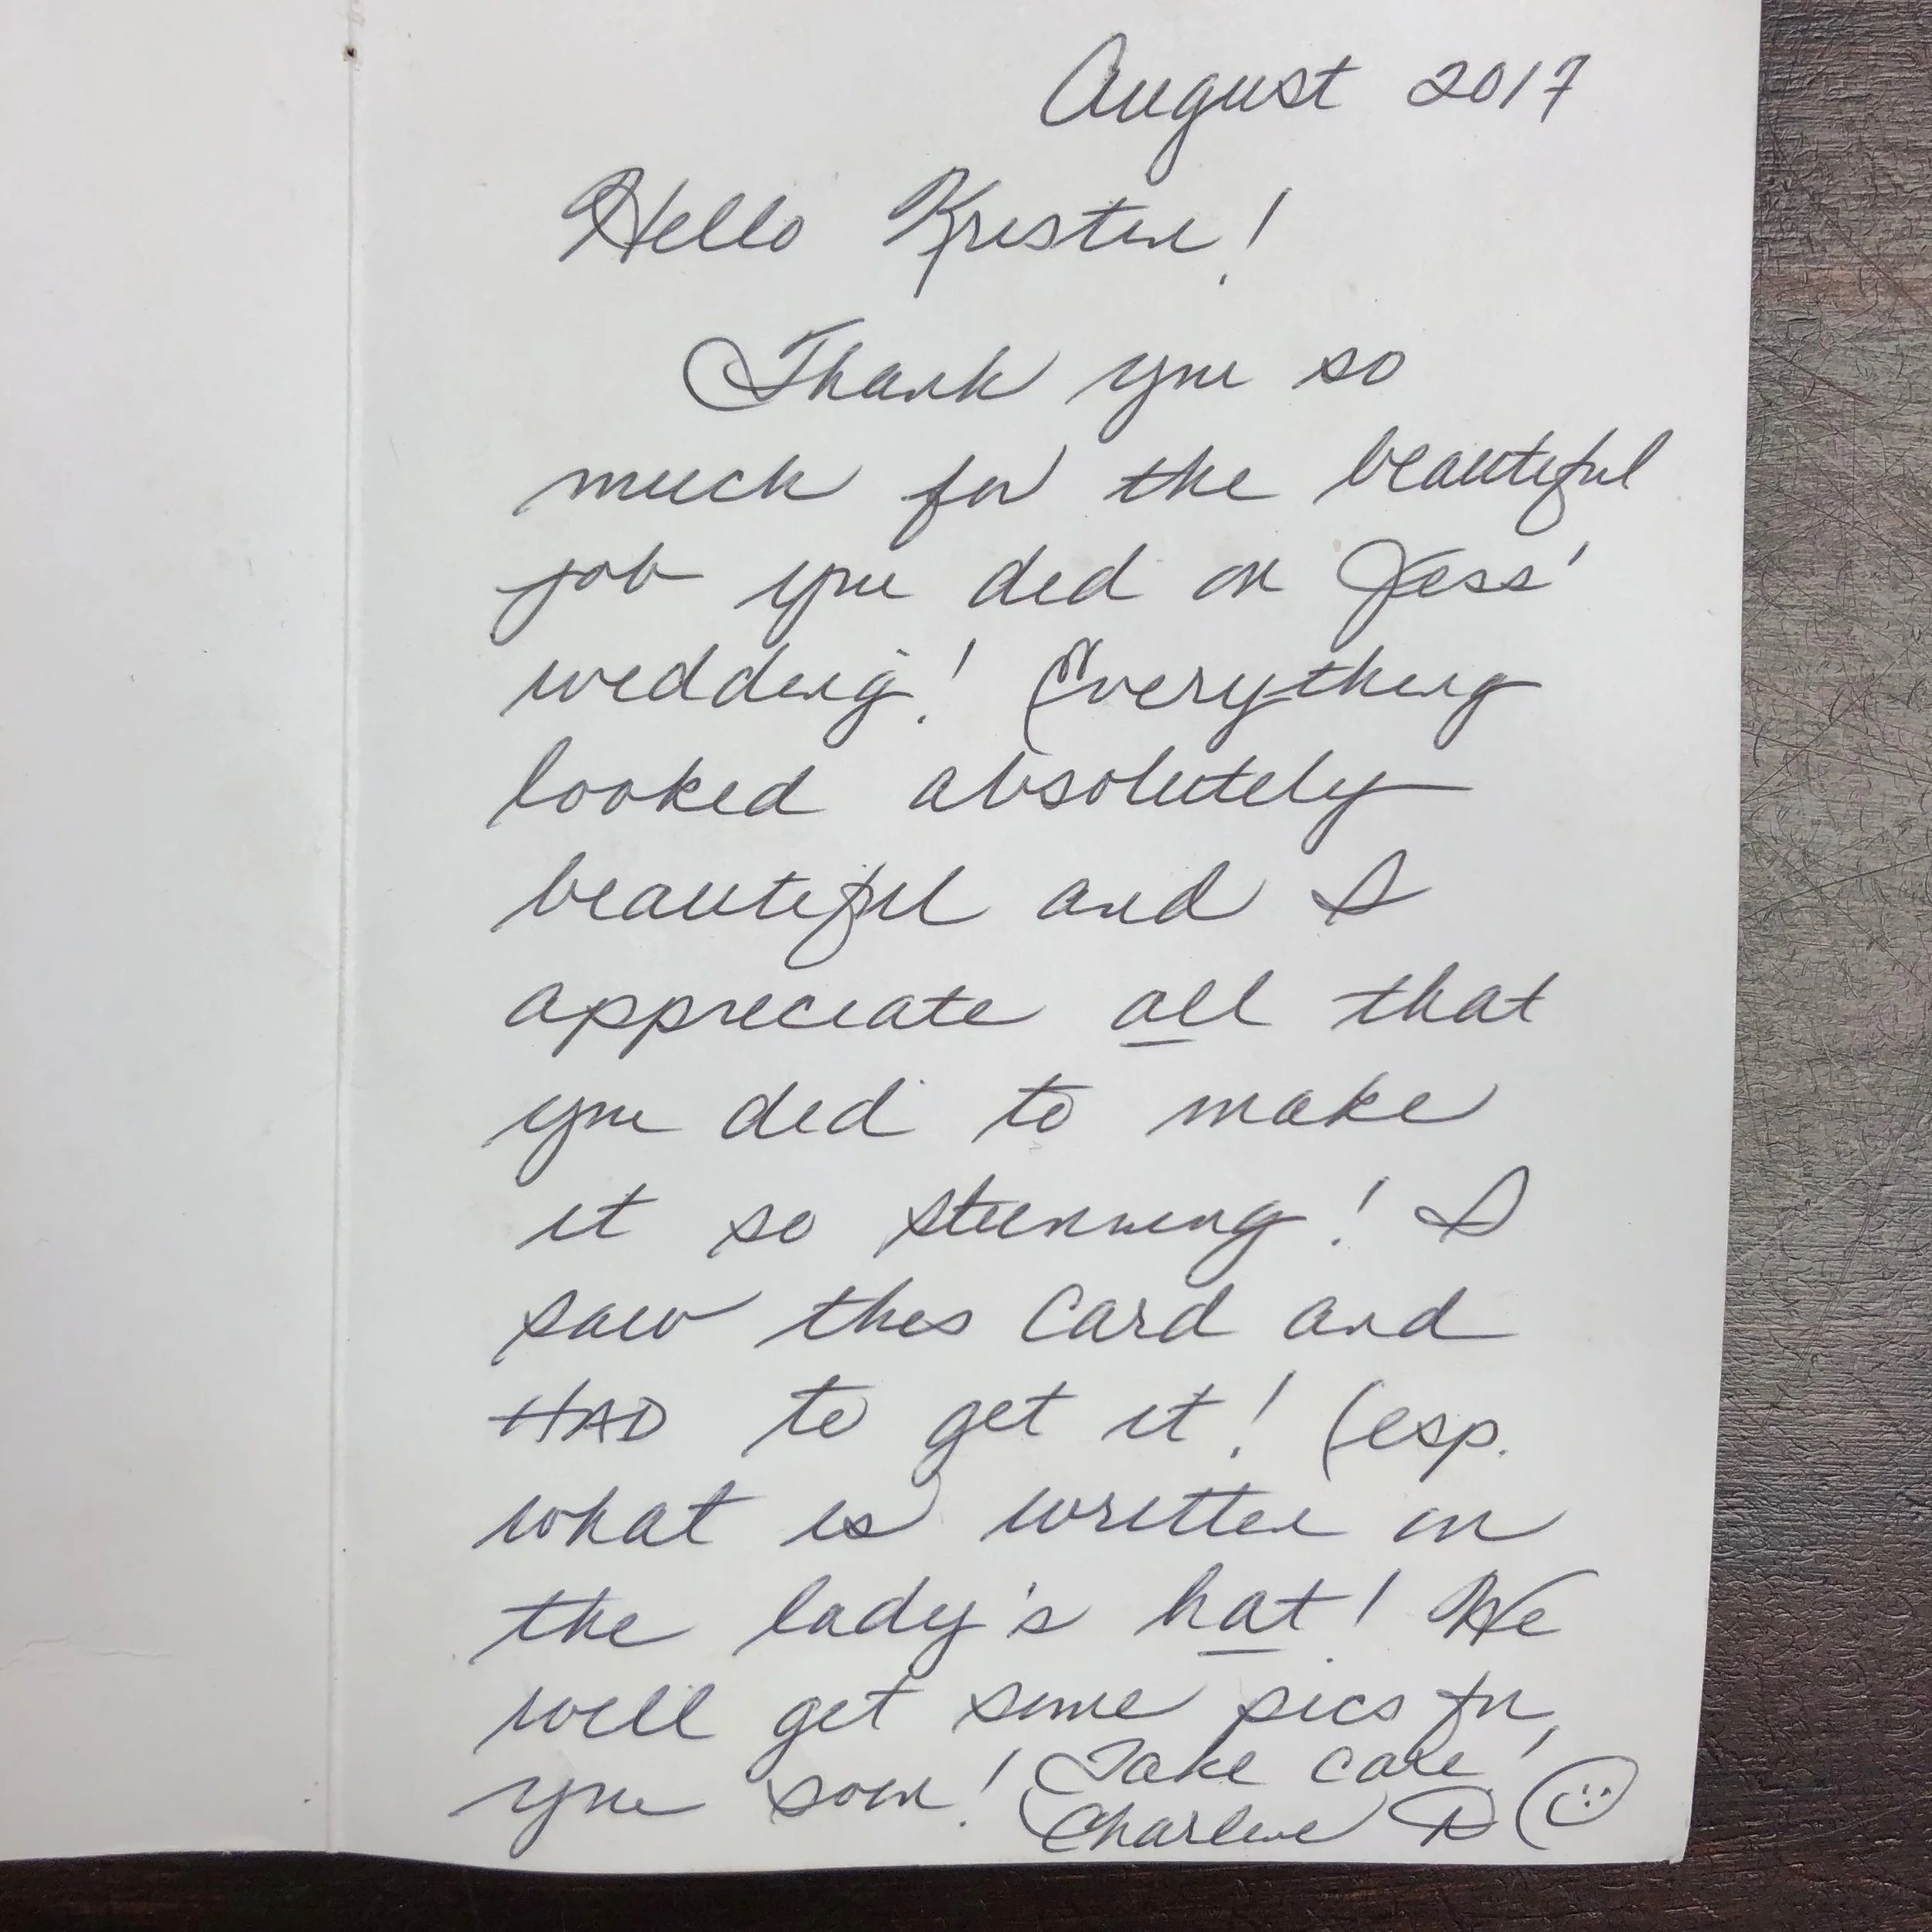 August 2017
Hello Kristen!
Thank you so
much for the beautiful
job you did on Jess'
wedding! Everything
looked absolutely
beautiful and I
appreciate all that
you did to make
it so stunning! I
saw this card and
HAD to get it! (esp.
what is written on
the lady's hat! We
will get some pics for
you soon! Take care,
Charlene D